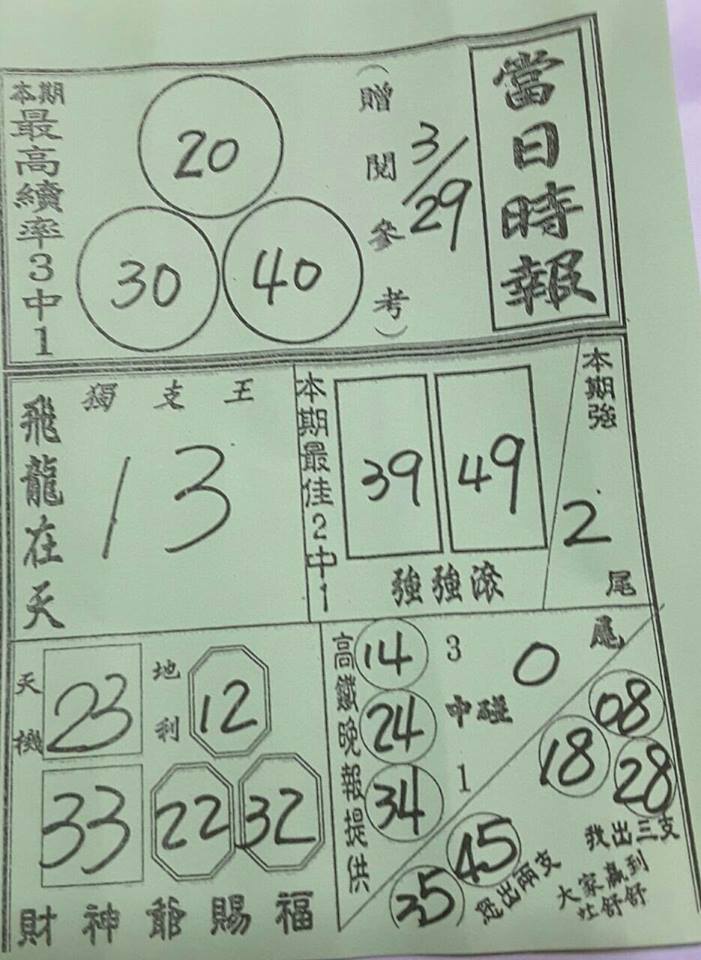 當日時報
3/29
(贈閱參考)
本期
最高續率3中1
20
30 40
飛龍在天
獨支王
13
本期最佳2中1
39 49
強強滾
本期強
2
尾
天機
23
33
地利
12
22 32
財神爺賜福
高鐵晚報提供
14
24
34
3中1
碰
0
尾
08
18
28
我出三支
45
35
您出兩支
大家贏到
吐舒舒